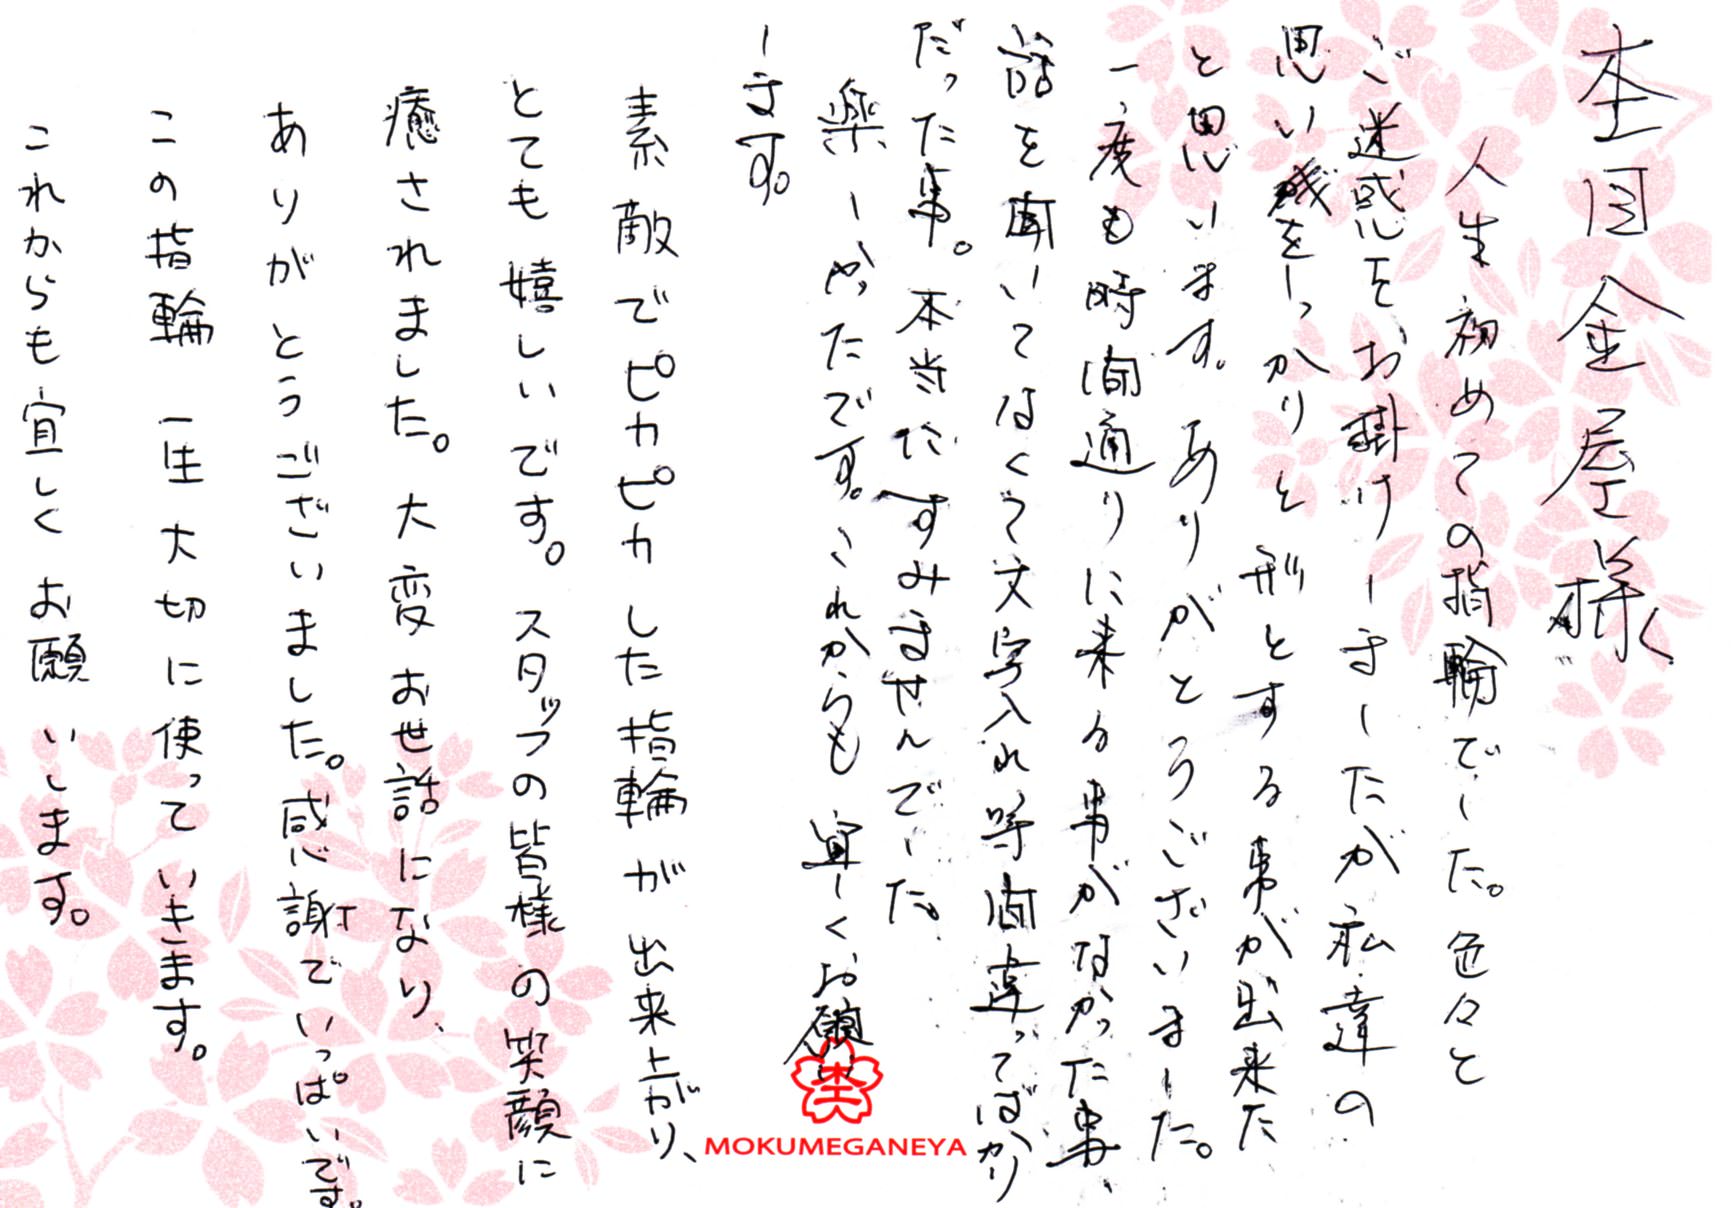 杢目金屋様
人生初めての指輪でした。色々と
ご迷惑をお掛けしましたが私達の
思い残をしっかりと形とする事が出来た
と思います。ありがとうございました。
一度も時間通りに来る事がなかった事、
話を聞いてなくて文字入れ等間違ってばかり
だった事。本当だすみませんでした。
楽しかったです。これからも宜しくお願い
します。
素敵でピカピカした指輪が出来上がり、
とても嬉しいです。スタッフの皆様の笑顔に
癒されました。大変お世話になり、
ありがとうございました。感謝でいっぱいです。
この指輪一生大切に使っていきます。
これからも宜しくお願いします。
MOKUMEGANEYA